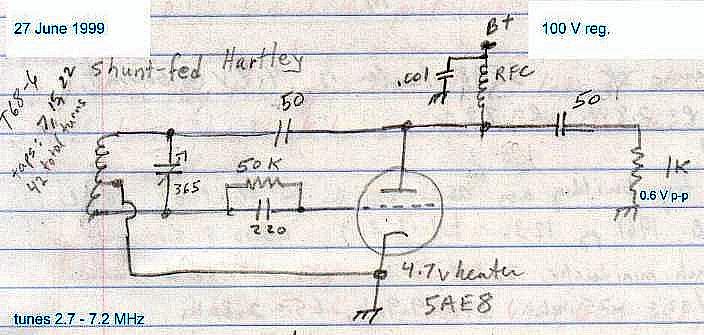 27 June 1999
B+
100 V reg.
shunt-fed Hartley
.001
RFC
T68-6
taps: 7, 15, 22
42 total turns
50
50
50K
365
220
1K
0.6 V p-p
4.7v heater
5AE8
tunes 2.7 - 7.2 MHz